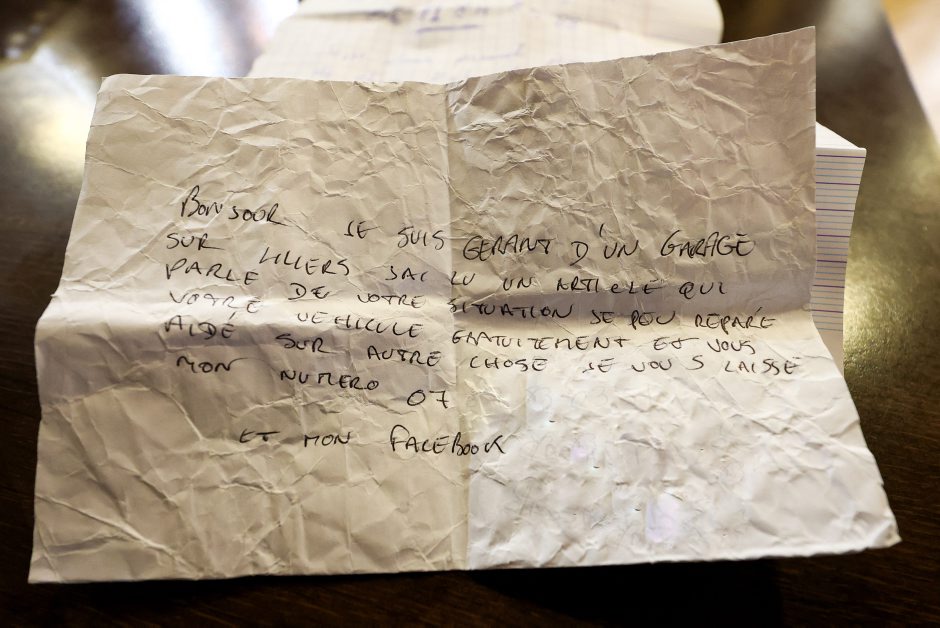 BONJOUR JE SUIS GERANT D'UN GARAGE
SUR LILLERS JAI LU UN ARTICLE QUI
PARLE DE VOTRE SITUATION JE PEU REPARÉ
VOTRE VEHICULE GRATUITEMENT ET VOUS
AIDÉ SUR AUTRE CHOSE JE VOUS LAISSE
MON NUMERO 07
ET MON FACEBOOK